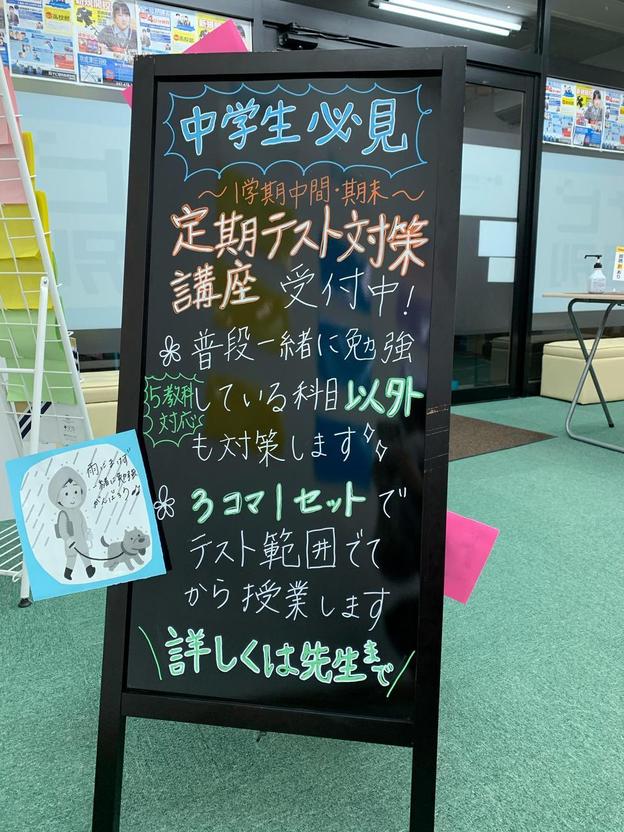 中学生必見
～1学期中間・期末～
定期テスト対策
講座 受付中!
普段一緒に勉強
5教科
対応
している科目以外
も対策します
3コマ1セットで
テスト範囲でて
から授業します
詳しくは先生まで
雨にまけず
一緒に勉強
がんばろう